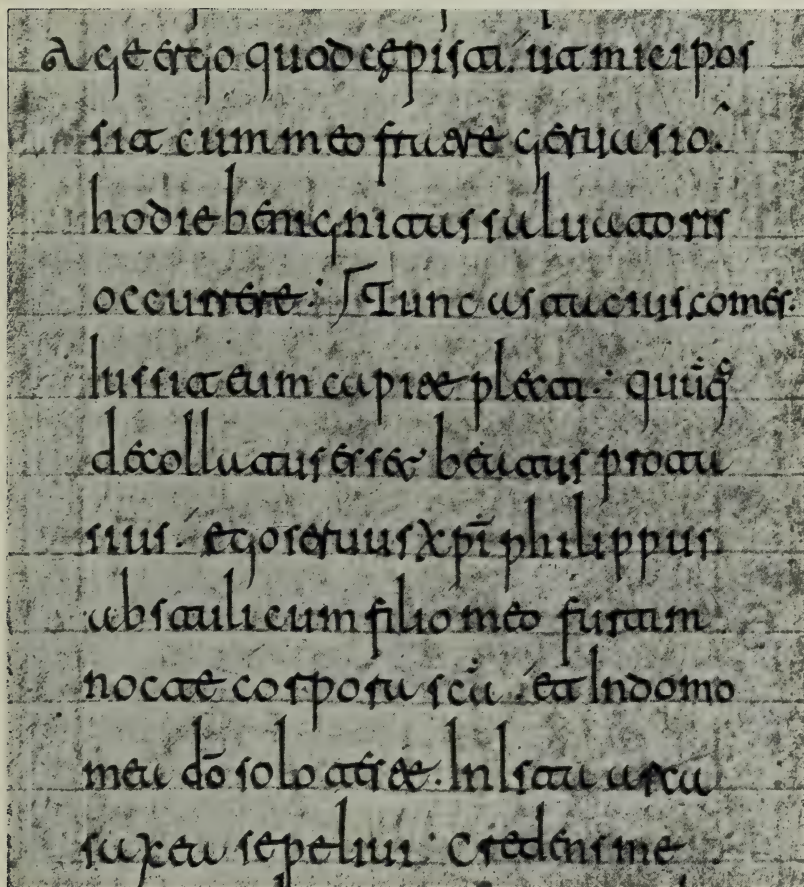 Age ergo quod cępisti. ut mici pos
sit cum meo fruere geruasio.
hodie benignitas saluatoris
occurrere. Tunc astacius comes.
Iussit eum capite plecti. quūq;
decollatus esset beatus prota
sius. ego seruus xp̄i philippus
abstuli cum filio meo furtim
nocte corpora sc̄a. et In domo
mea dō solo teste. In Ista arca
saxea sepeliui. Credens me